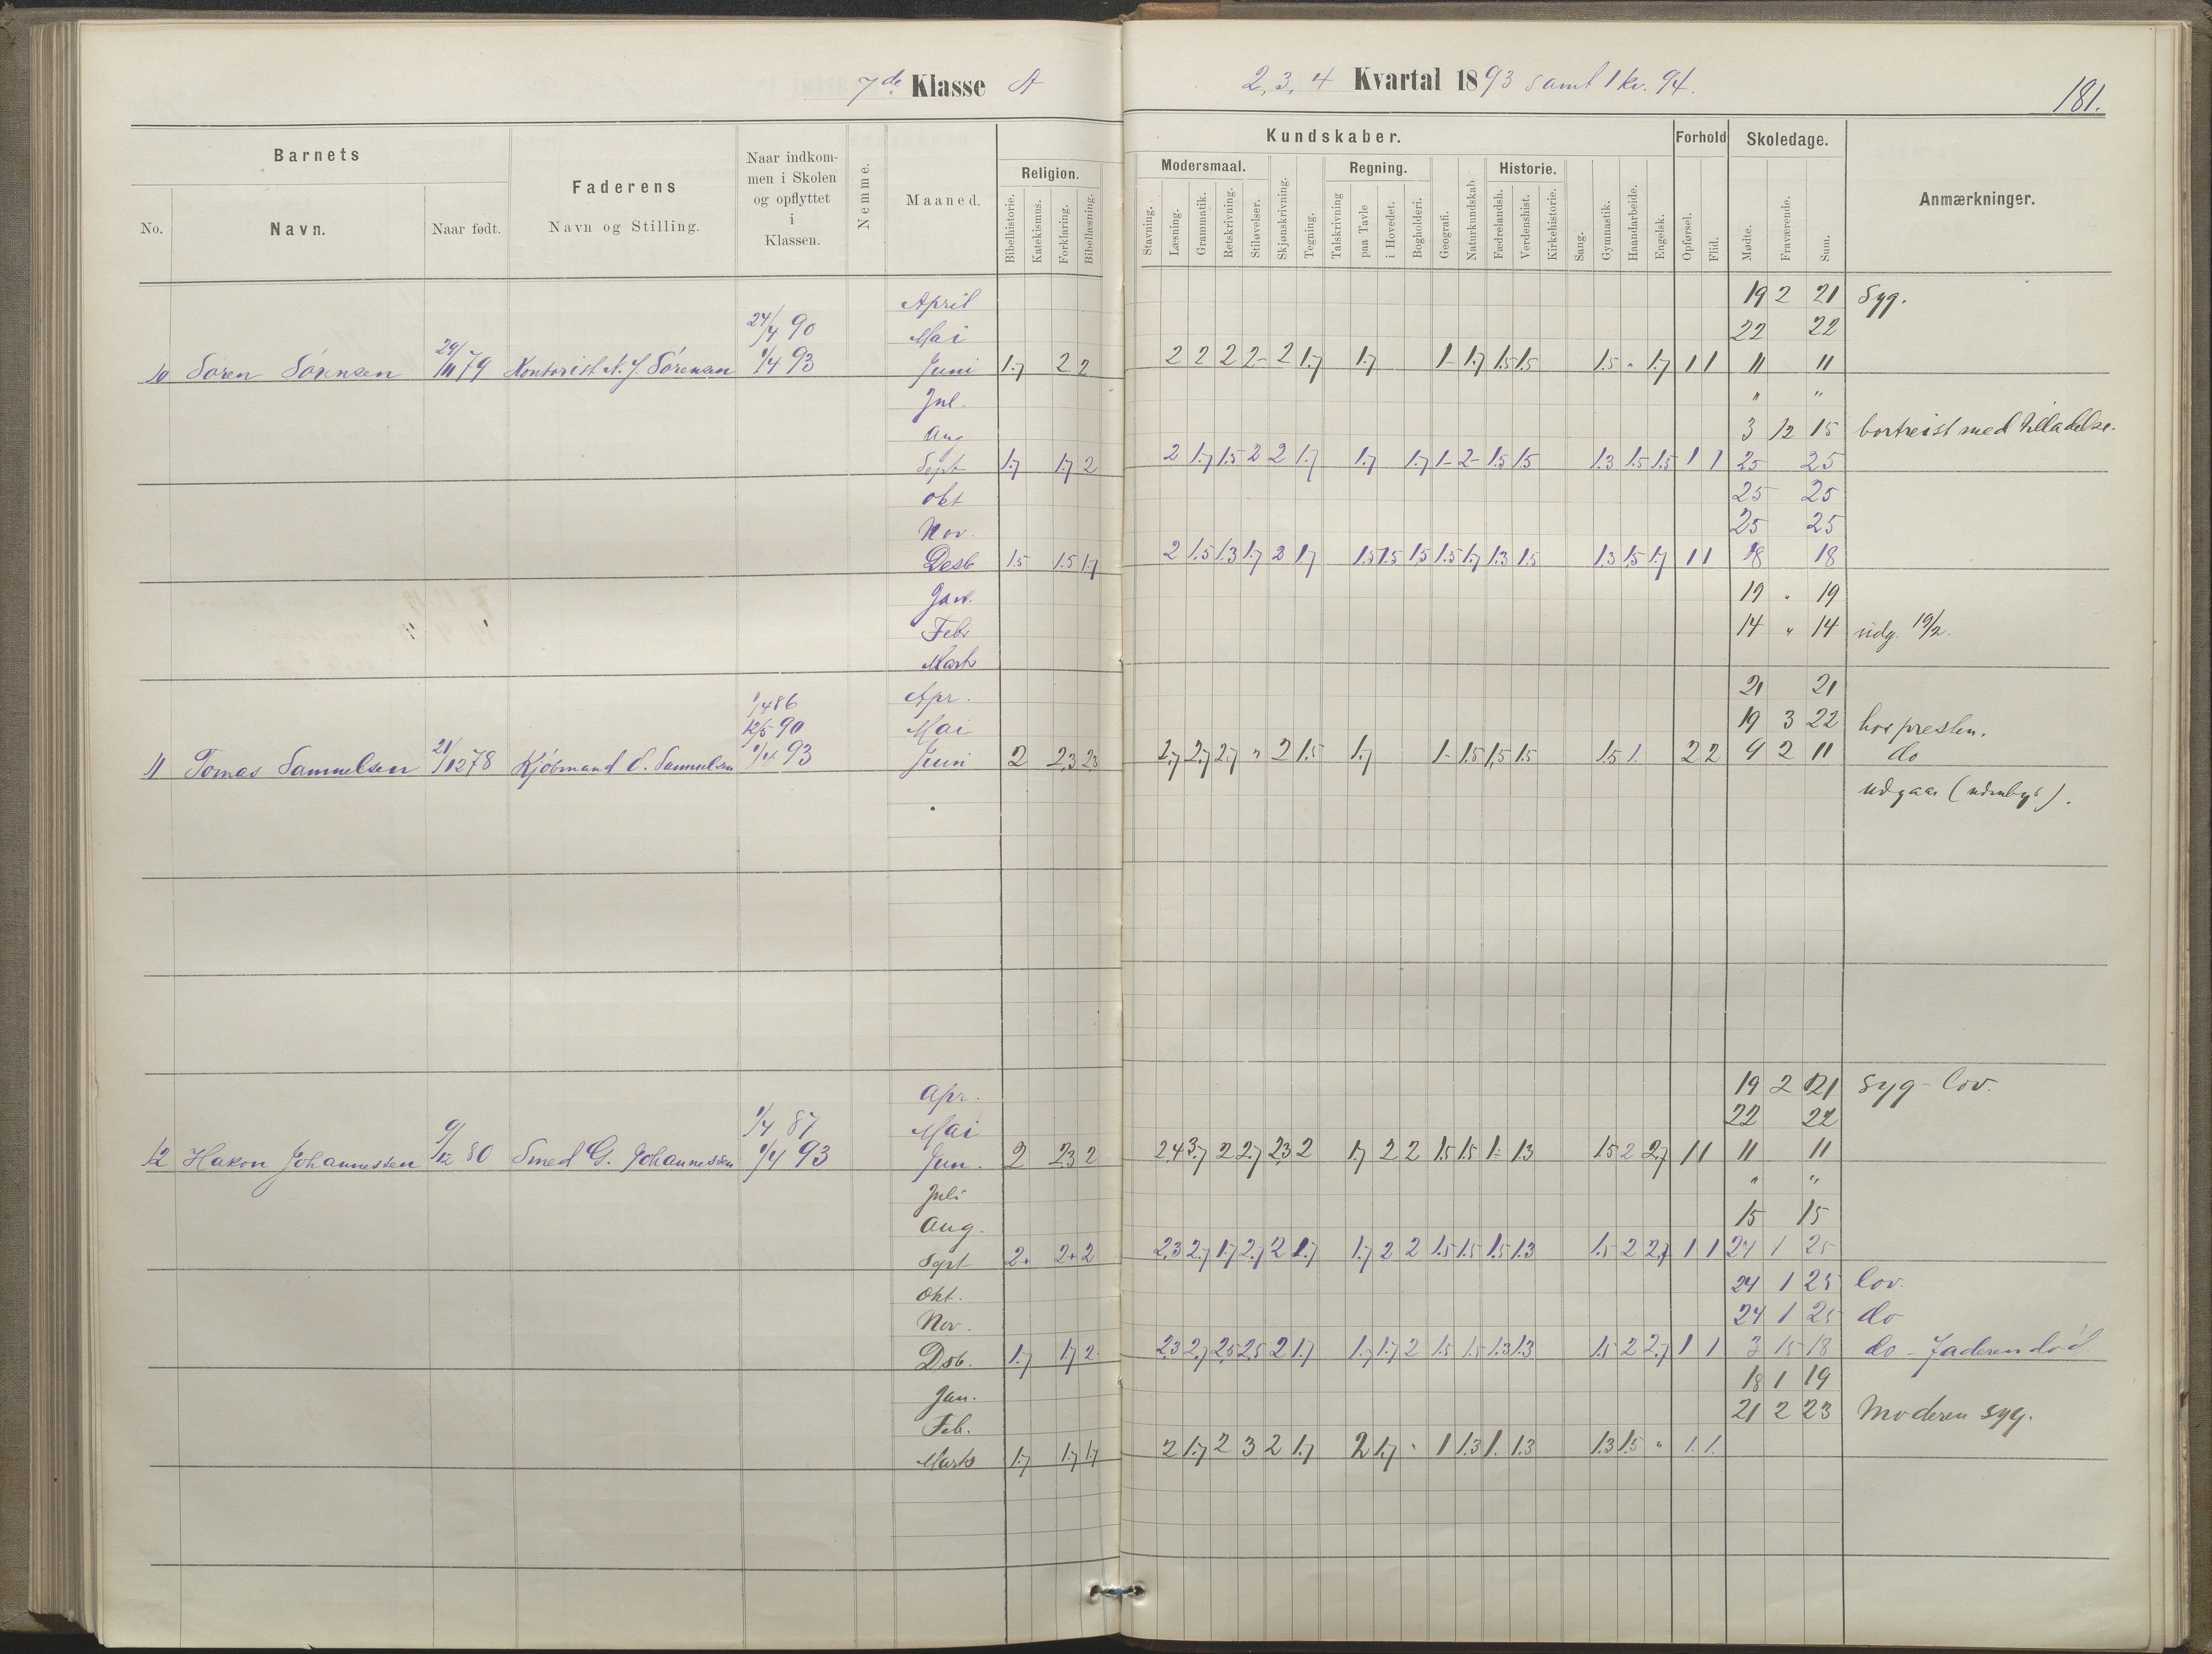 7de Klasse A
2, 3, 4 Kvartal 1893 samt 1 kv. 94.
181.
Barnets
Faderens
Naar indkom-
men i Skolen
og opflyttet
i
Klassen.
Nemme.
Maaned.
Religion.
Kundskaber.
Forhold
Skoledage.
Anmærkninger.
Modersmaal.
Regning.
Historie.
No.
Navn.
Naar født.
Navn og Stilling.
Bibelhistorie.
Katekismus.
Forklaring.
Bibellæsning.
Stavning.
Læsning.
Grammatik.
Retskrivning.
Stiløvelser.
Skjønskrivning.
Tegning.
Talskrivning
paa Tavle
i Hovedet.
Bogholderi.
Geografi.
Naturkundskab
Fædrelandsh.
Verdenshist.
Kirkehistorie.
Sang.
Gymnastik.
Haandarbeide.
Engelsk.
Opførsel.
Flid.
Mødte.
Fraværende.
Sum.
April 19 2 21 Syg.
24/4 90 Mai 22 22
10 Søren Sørensen 29/11 79 Kontorist N. J. Sørensen 1/4 93 Juni 1.7 2 2 2 2 2 2- 2 1.7 1.7 1- 1.7 1.5 1.5 1.5 " 1.7 1 1 11 11
Jul. " "
Aug 3 12 15 bortreist med tilladelse.
Sept 1.7 1.7 2 2 1.7 1.5 2 2 1.7 1.7 1.7 1- 2- 1.5 1.5 1.3 1.5 1.5 1 1 25 25
Okt 25 25
Nov. 25 25
Desb 1.5 1.5 1.7 2 1.5 1.3 1.7 2 1.7 1.5 1.5 1.5 1.5 1.7 1.3 1.5 1.3 1.5 1.7 1 1 18 18
Jan. 19 " 19
Febr 14 " 14 udg. 19/2.
Marts
1/4 86 Apr. 21 21
12/5 90 Mai 19 3 22 hos presten.
11 Tomas Samuelsen 21/12 78 Kjøbmand C. Samuelsen 1/4 93 Juni 2 2.3 2.3 2.7 2.7 2.7 " 2 1.5 1.7 1- 1.5 1.5 1.5 1.5 1. 2 2 9 2 11 do
udgaar (udenbys).
Apr. 19 2 21 syg - lov.
1/4 87 Mai 22 22
12 Hakon Johannessen 9/12 80 Smed G. Johannessen 1/4 93 Jun. 2 2.3 2 2.4 3.7 2 2.7 2.3 2 1.7 2 2 1.5 1.5 1- 1.3 1.5 2 2.7 1 1 11 11
Juli " "
Aug. 15 15
Sept 2+ 2+ 2 2.3 2.7 1.7 2.7 2 1.7 1.7 2 2 1.5 1.5 1.5 1.3 1.5 2 2.7 1 1 24 1 25
Okt. 24 1 25 lov.
Nov. 24 1 25 do
Dsb. 1.7 1.7 2 2.3 2.7 2.5 2.5 2 1.7 1.7 1.7 2 1.5 1.5 1.3 1.3 1.5 2 2.7 1 1 3 15 18 do - Faderen død.
Jan. 18 1 19
Feb. 21 2 23 Moderen syg.
Marts 1.7 1.7 1.7 2 1.7 2 3 2 1.7 2 1.7 " 1 1.3 1. 1.3 1.3 1.5 " 1. 1.